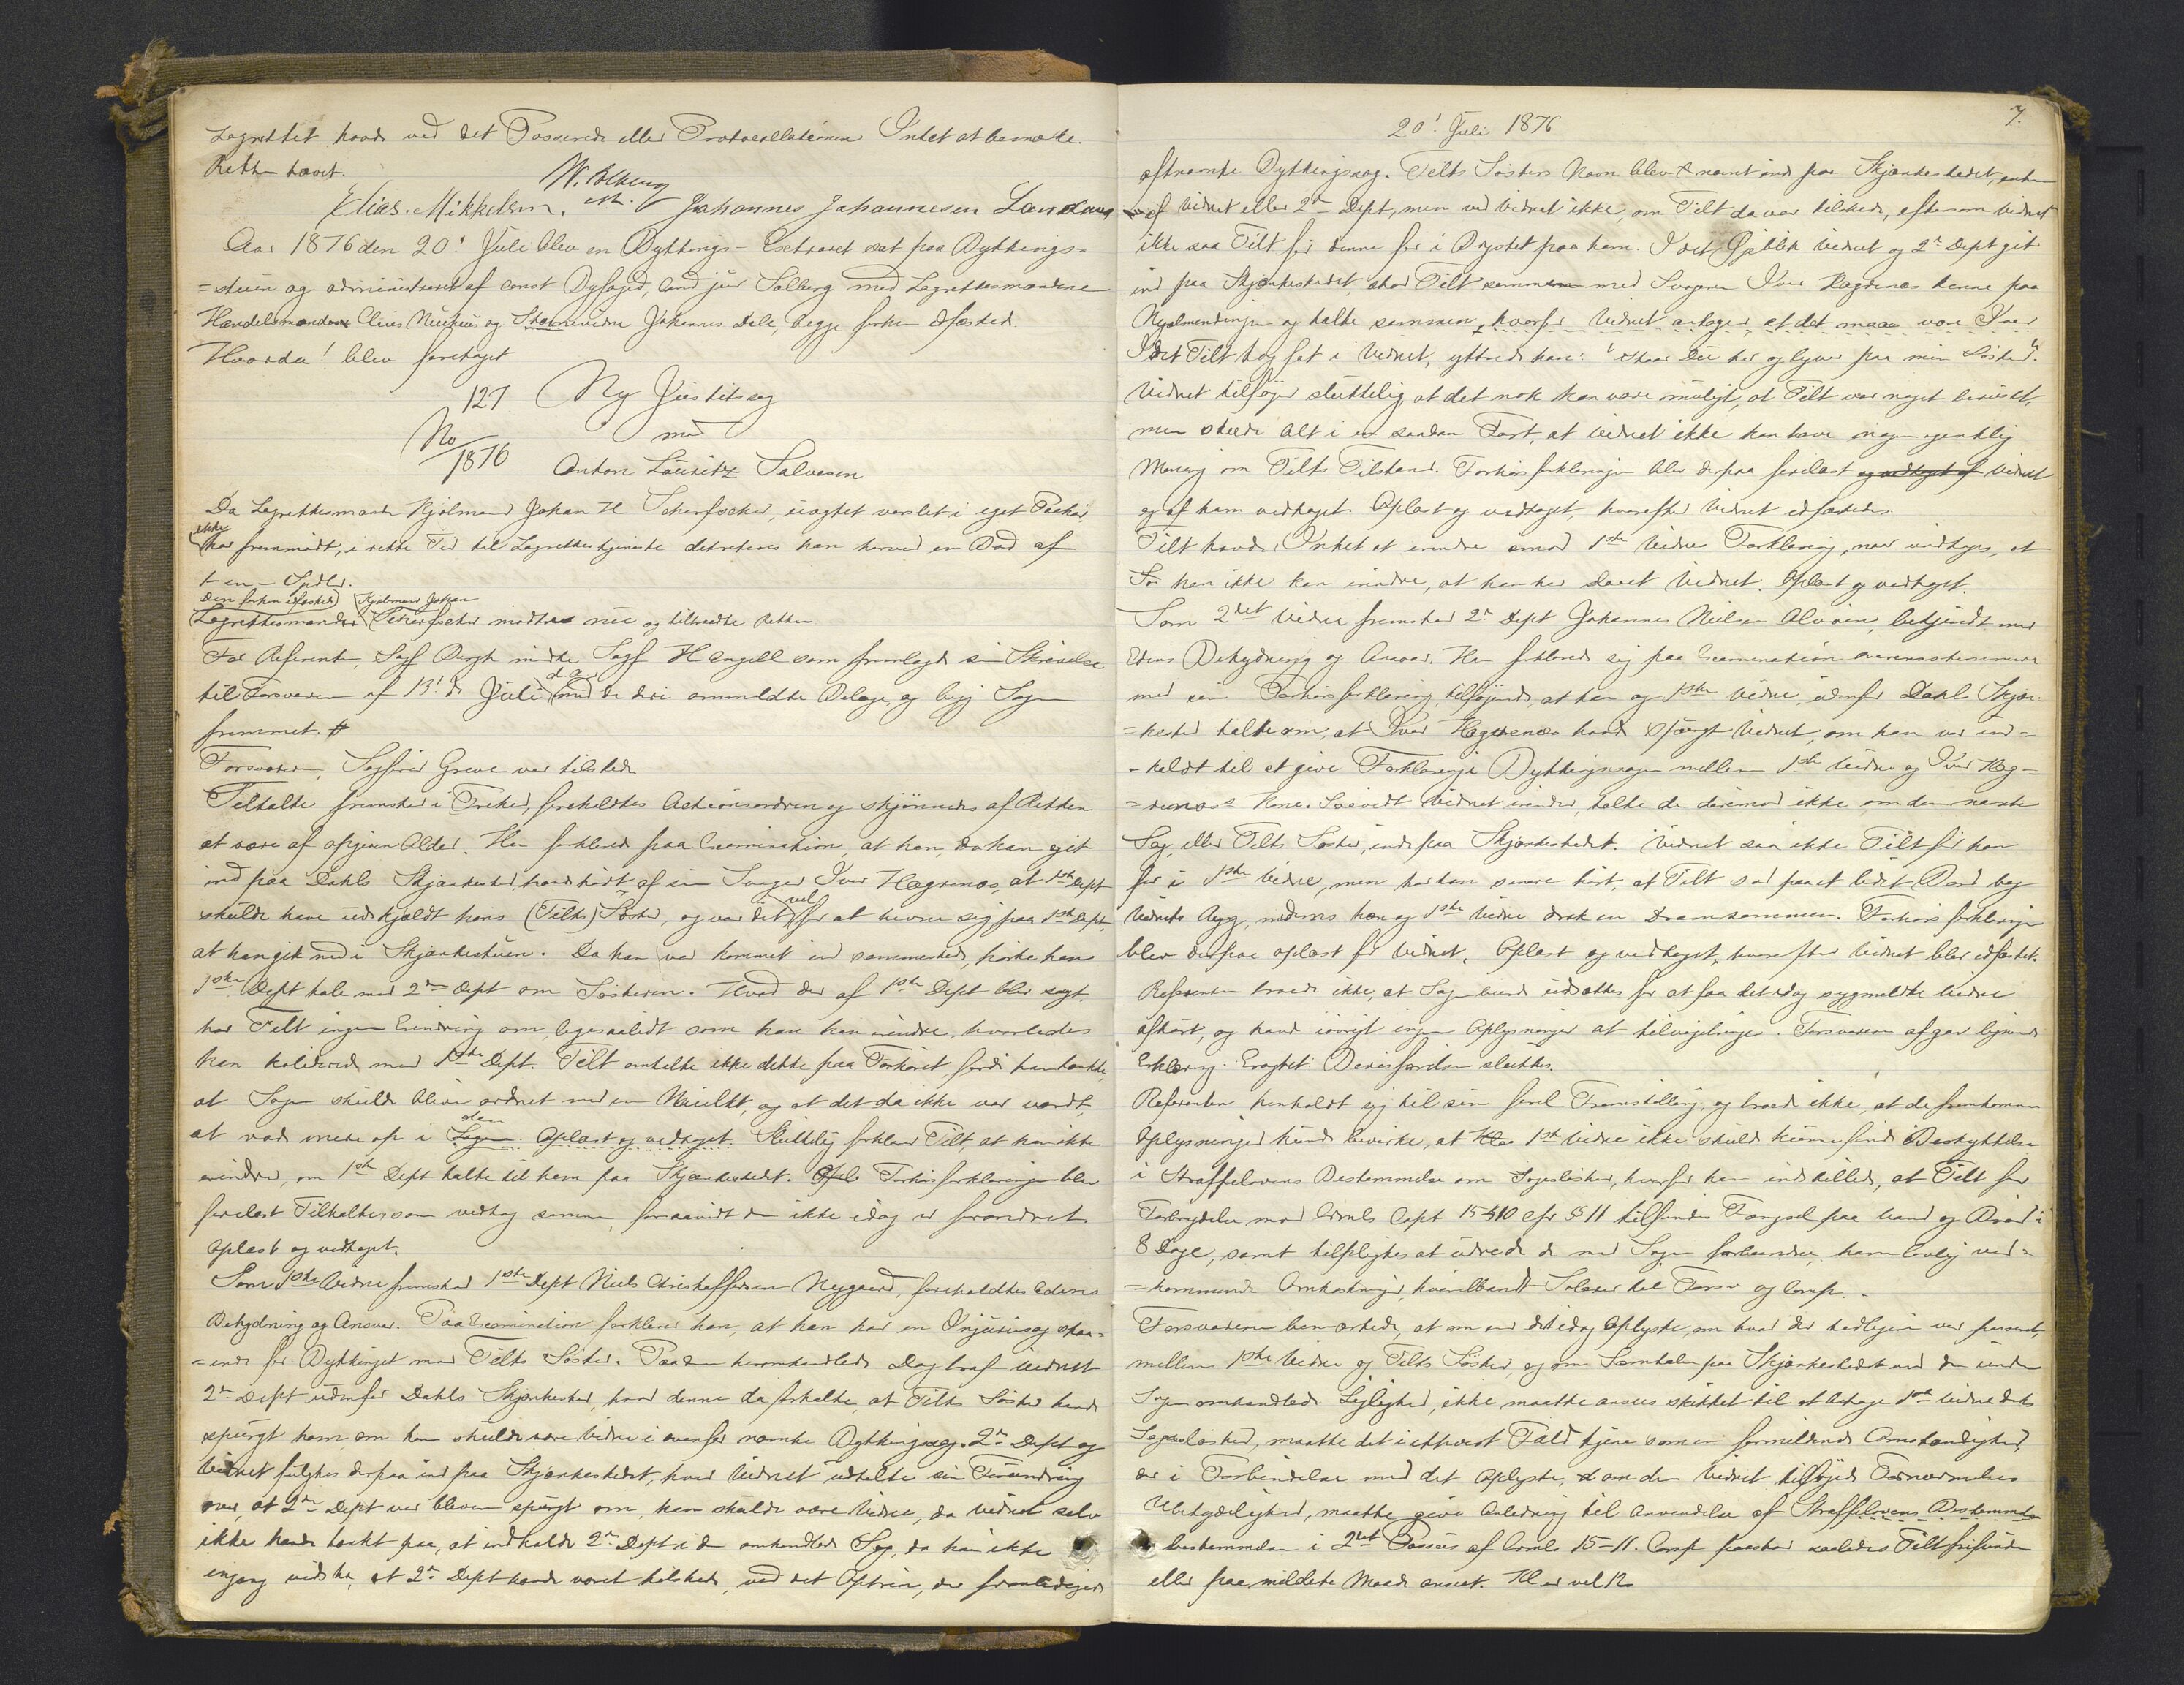 Lagrettet havde ved det Passerede eller Protocollationen Intet at bemærke.
Retten hævet.
Elias Mikkelsen. Johannes Johannesen
Aar 1876 den 20! Juli blev en Bythings-Extraret sat paa Bythings-
=stuen og administreret af const Byfoged, cand jur Solberg med Lagrettesmændene
Handelsmanden og Johannes Dale, begge forhen edfæstede.
Hvorda! blev foretaget
No 127/1876
Ny Justitssag
mod
Anton Lauritz Salvesen
Da Lagrettesmand Hjulmand Johan H uagtet varslet i eget Paahør,
ikke
har fremmødt, i rette Tid til Lagrettestjeneste dikteres han herved en Bod af
t en - Spdlr.
Den forhen edfæstede Hjulmand Johan
Lagrettesmanden mødte nu og tiltraadte Retten
For Referenten, Sagf Bergh mødte Sagf H Angell som fremlagde sin Skrivelse
til Forsvareren af 13! ds Juli med de deri ommeldte Bilage, og begj Sagen
fremmet. #
Forsvareren, Sagfører Greve var tilstede
Tiltalte fremstod i Frihed, foreholdtes Actionsordren og skjønnedes af Retten
at være af opgiven Alder. Han forklared paa Examination, at han, da han gik
ind paa Dahls Skjænkested, havde hørt af sin Svoger Iver Hagrenæs, at 1ste Dept
skulde have udskjældt hans (Tilts) Søster, og var det vel for at hevne sig paa 1ste Dept,
at han gik ned i Skjænkestuen. Da han var kommet ind sammesteds, hørte han
1ste Dept tale med 2den Dept om Søsteren. Hvad der af 1ste Dept blev sagt,
har Tilt ingen Erindring om, ligesaalidt som han kan erindre, hvorledes
han kolidered med 1ste Dept. Tilt omtalte ikke dette paa Forhøret, fordi han tænkte,
at Sagen skulde blive ordnet med en Mulkt, og at det da ikke var værdt,
den
at rode mere op i Sagen. Oplæst og vedtaget. Sluttelig forklarer Tilt, at han ikke
erindrer, om 1ste Dept talte til ham paa Skjænkestedet. Forhørsforklaringen blev
forelæst Tiltalte, som vedtog samme, forsaavidt den ikke idag er forandret.
Oplæst og vedtaget.
Som 1ste Vidne fremstod 1ste Dept Niels Christoffersen Nygaard, foreholdtes Edens
Betydning og Ansvar. Paa Examination forklarer han, at han har en Injuriesag staa-
=ende for Bythinget mod Tilts Søster. Paa den heromhandlede Dag traf Vidnet
2den Dept udenfor Dahls Skjænkested, hvor denne da fortalte, at Tilts Søster havde
spurgt ham om han skulde være Vidne i ovenfor nævnte Bythingssag. 2den Dept og
Vidnet fulgtes derpaa ind paa Skjænkestedet, hvor Vidnet udtalte sin Forundring
over, at 2den Dept var bleven spurgt om, han skulde være Vidne, da Vidnet selv
ikke havde tænkt paa, at indkalde 2den Dept i den omhandlede Sag, da han ikke
engang vidste, at 2den Dept havde været tilstede, ved det Optrin, der foranledigede
7.
20! Juli 1876
oftnævnte Bythingssag. Tilts Søsters Navn blev nævnt inde paa Skjænkestedet, enten
af Vidnet eller 2den Dept, men ved Vidnet ikke, om Tilt da var tilstede, eftersom Vidnet
ikke saa Tilt før denne for i Brystet paa ham. I det Øjeblik Vidnet og 2den Dept gik
ind paa Skjænkestedet, stod Tilt sammen med Svogeren Iver Hagrenæs henne paa
Nyalmendingen og talte sammen, hvorfor Vidnet antager, at det maa være Iver
Idet Tilt tog fat i Vidnet, yttrede han: "staar Du her og lyver paa min Søster".
Vidnet tilføjer sluttelig, at det nok kan være muligt, at Tilt var noget beruset,
men skede Alt i en saadan Fart, at Vidnet ikke kan have nogen egentlig
Mening om Tilts Tilstand. Forhørsforklaringen blev derpaa forelæst og vedtaget af Vidnet
og af ham vedtaget. Oplæst og vedtaget, hvorefter Vidnet edfæstedes.
Tilt havde Intet at erindre imod 1ste Vidnes Forklaring, naar undtages, at
han ikke kan erindre, at han har slaaet Vidnet. Oplæst og vedtaget.
Som 2det Vidne fremstod 2den Dept Johannes Nielsen Alvøen, bekjendt med
Edens Betydning og Ansvar. Han forklared sig paa Examination overensstemmende
med sin Forhørsforklaring, tilføjende, at han og 1ste Vidne, udenfor Dahls Skjæn-
=kested talte om, at Iver Hagrenæs havde spurgt Vidnet, om han var ind-
=kaldt til at give Forklaring i Bythingssagen mellem 1ste Vidne og Iver Hag-
=renæs's Kone. Saavidt Vidnet erindrer, talte de derimod ikke om den nævnte
Sag, eller Tilts Søster, inde paa Skjænkestedet. Vidnet saa ikke Tilt før han
for i 1ste Vidne, men har han senere hørt, at Tilt sad paa et lidet Bord bag
Vidnets Ryg, medens han og 1ste Vidne drak en Dram sammen. Forhørsforklaringen
blev derpaa oplæst for Vidnet. Oplæst og vedtaget, hvorefter Vidnet blev edfæstet.
Referenten troede ikke, at Sagen burde udsættes for at faa det idag sygmeldte Vidne
afhørt, og havde iøvrigt ingen Oplysninger at tilvejebringe. Forsvareren afgav lignende
Erklæring. Eragtet: Bevisførelsen sluttes.
Referenten henholdt sig til sin forel Fremstilling, og troede ikke, at de fremkomne
Oplysninger kunde bevirke, at 1ste Vidne ikke skulde kunne finde Beskyttelse
i Straffelovens Bestemmelse om Sagesløshed, hvorfor han indstilled, at Tilt for
Forbrydelse mod Crmls Capt 15 §10 cfr §11 tilfindes Fængsel paa Vand og Brød i
8 Dage, samt tilpligtes at udrede de med Sagen forbundne, ham lovlig ved-
=kommende Omkostninger, hvoriblandt Salærer til Forsv og
Forsvareren bemærkede, at om end det idag Oplyste, om hvad der tidligere var passeret,
mellem 1ste Vidne og Tilts Søster, og om Samtalen paa Skjænkestedet ved den under
Sagen omhandlede Lejlighed, ikke maatte ansees skikket til at betage 1ste Vidne dets
Sagesløshed, maatte det i ethvert Fald tjene som en formildende Omstændighed,
der i Forbindelse med det Oplyste, om den Vidnet tilføjede Fornærmelses
Ubetydelighed, maatte give Anledning til Anvendelse af Straffelovens Bestemmelse
bestemmelsen i 2det Passus af Crmls 15-11. paastod saaledes Tilt frifunden
eller paa mildeste Maade anseet.